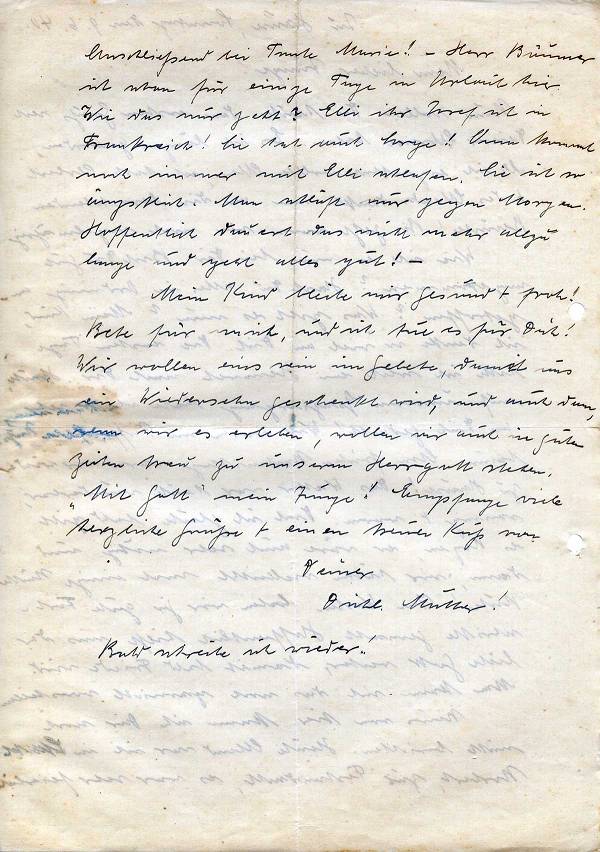 Anschließend bei Tante Marie! – Herr Bäumer
ist eben für einige Tage in Urlaub hier.
Wie das nur geht? Elli ihr Josef ist in
Frankreich! Sie hat auch Sorge! Oma kommt
noch immer mit Elli schlafen. Sie ist so
ängstlich. Man schläft nur gegen Morgen.
Hoffentlich dauert das nicht mehr allzu
lange und geht alles gut! –
Mein Kind bleibe mir gesund + froh!
Bete für mich, und ich tue es für Dich!
Wir wollen eins sein im Gebete, damit uns
ein Wiedersehn geschenkt wird, und auch dann,
wenn wir es erleben, wollen wir auch in guten
Zeiten treu zu unserem Herrgott stehen.
"Mit Gott" mein Junge! Empfange viele
herzliche Grüße + einen treuen Kuß von
Deiner
Dichl. Mutter!
Bald schreibe ich wieder!